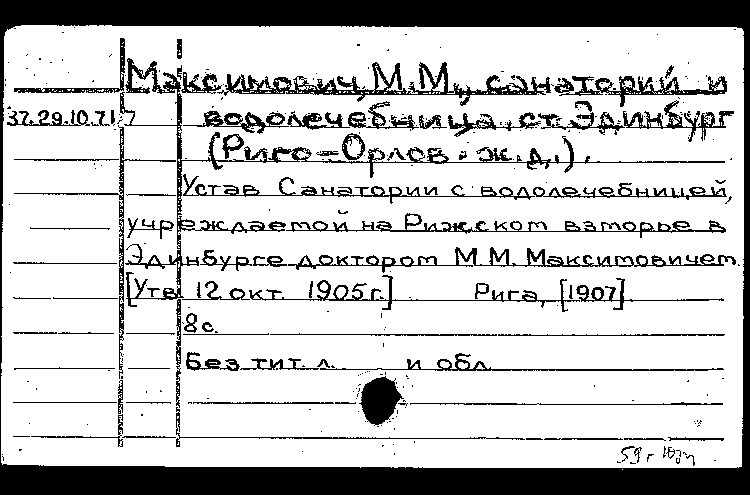 Максимович, М.М., санаторий и
37.29.10.71.7 водолечебница, ст. Эдинбург
(Риго-Орлов. ж.д.).
Устав Санатории с водолечебницей,
учреждаемой на Рижском взморье в
Эдинбурге доктором М.М. Максимовичем.
[Утв. 12 окт. 1905 г.] Рига, [1907]
8 с.
Без тит. л. и обл.
59 г